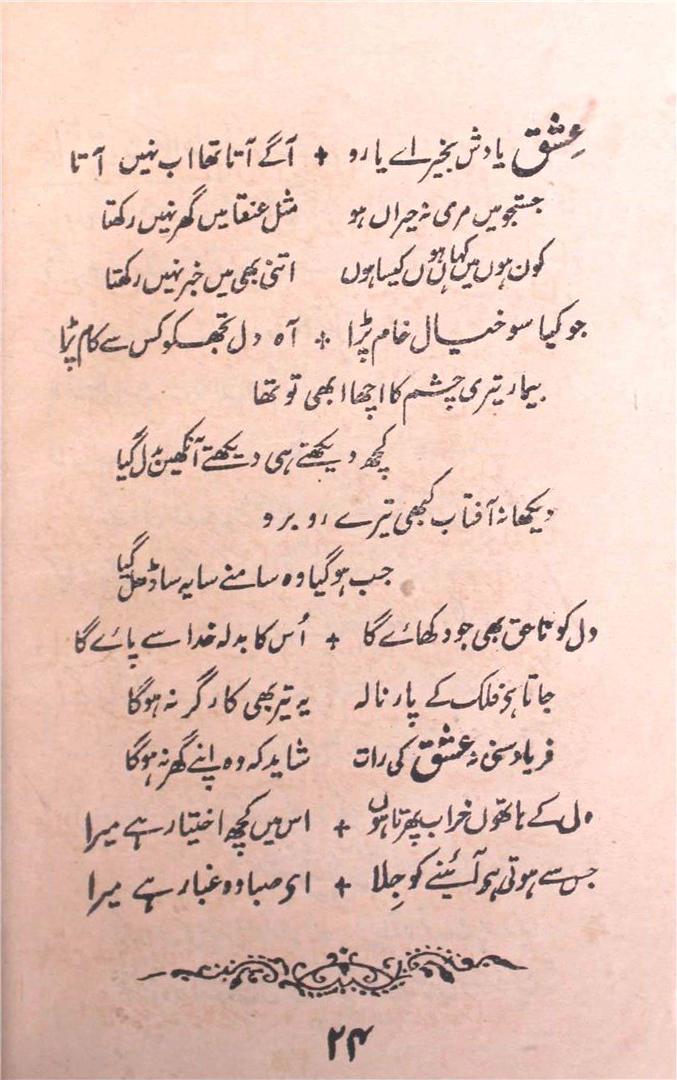 عشق یادش بخیر اے یارو + آگے آتا تھا اب نہیں آتا
جستجو میں مری نہ حیراں ہو مثل عنقا میں گھر نہیں رکھتا
کون ہوں میں کہاں ہوں کیسا ہوں اتنی بھی میں خبر نہیں رکھتا
جو کیا سو خیال خام پڑا + آہ دل تجھ کو کس سے کام پڑا
بیمار تیری چشم کا اچھا ابھی تو تھا
کچھ دیکھتے ہی دیکھتے آنکھیں بدل گیا
دیکھا نہ آفتاب کبھی تیرے روبرو
جب ہو گیا وہ سامنے سایہ سا ڈھل گیا
دل کو ناحق بھی جو دکھائے گا + اُس کا بدلہ خدا سے پائے گا
جاتا ہے فلک کے پار نالہ یہ تیر بھی کارگر نہ ہوگا
فریاد سنی نہ عشق کی رات شاید کہ وہ اپنے گھر نہ ہوگا
دل کے ہاتھوں خراب پھرتا ہوں + اس میں کچھ اختیار ہے میرا
جس سے ہوتی ہے آئینے کو جِلا + اے صبا وہ غبار ہے میرا
۲۴